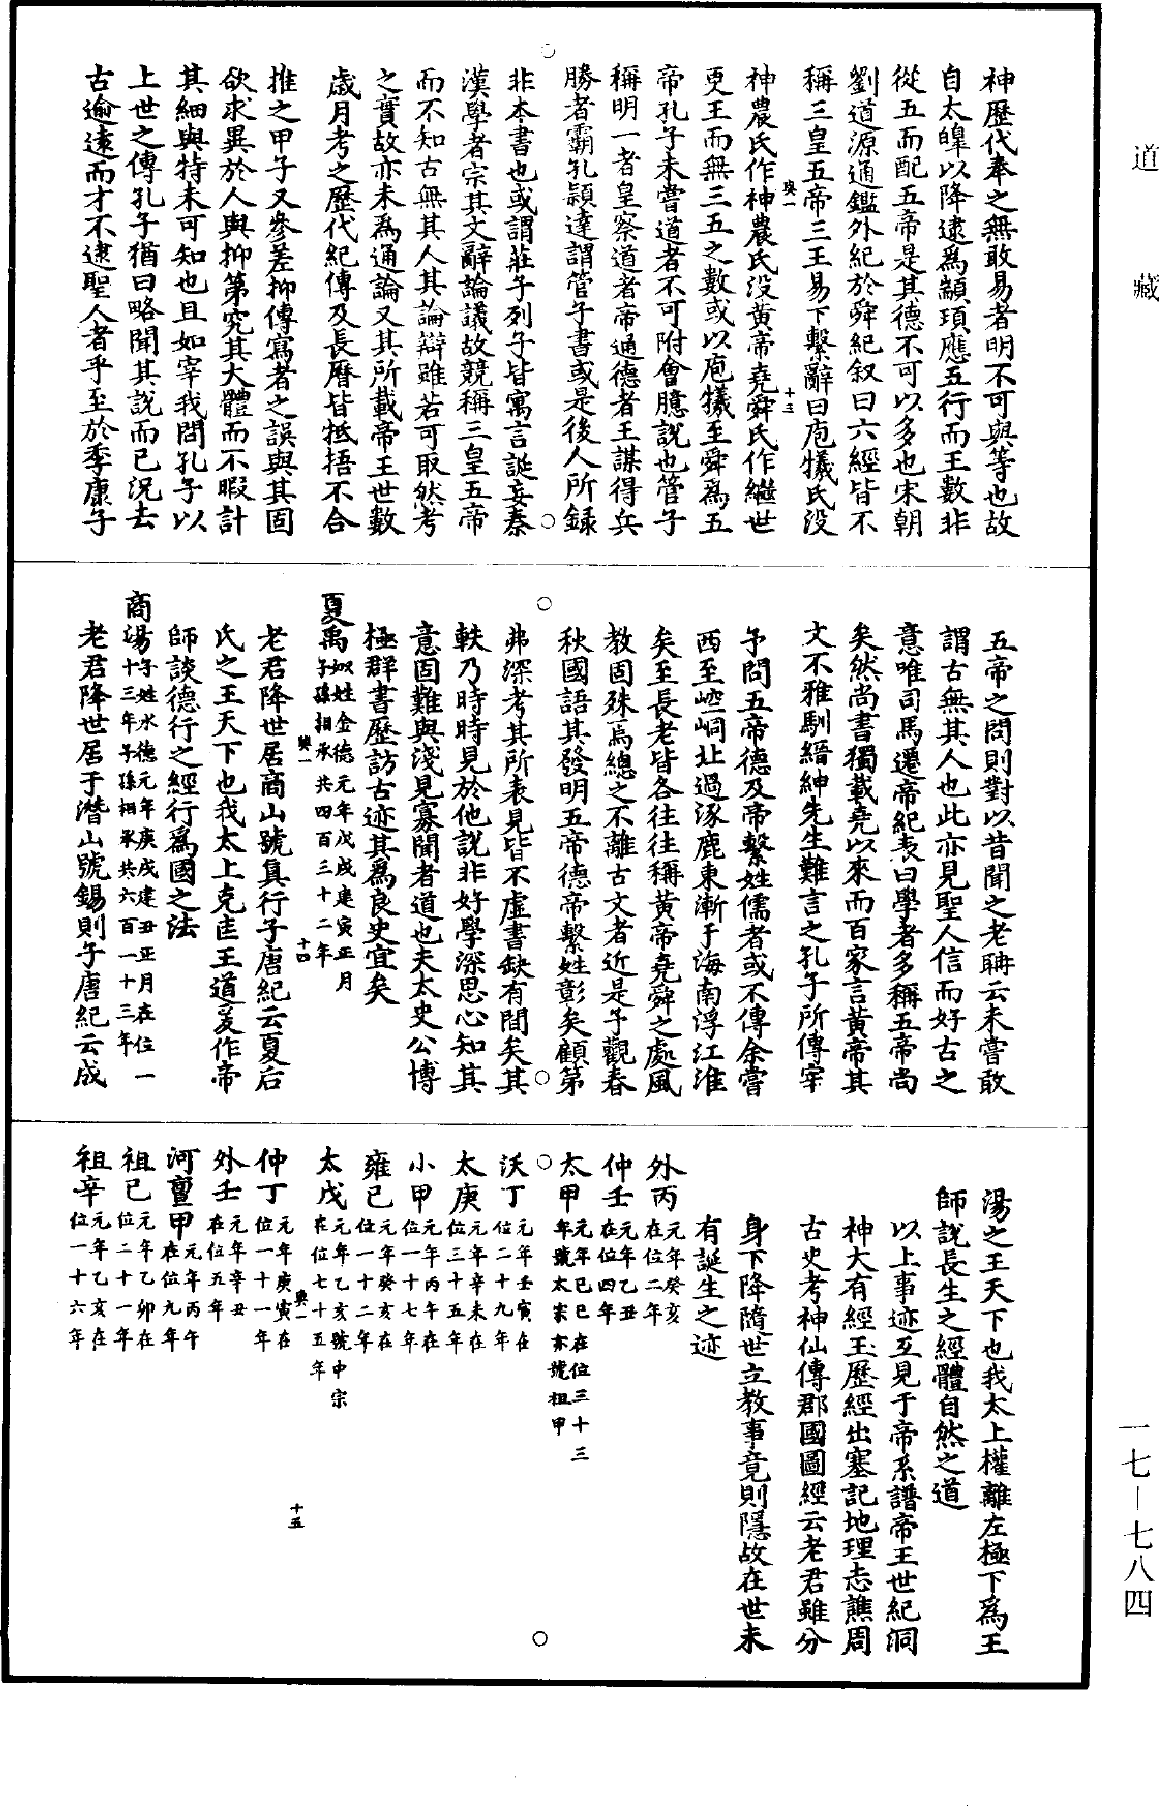 道藏
神歷代奉之無敢易者明不可與等也故
自太皞以降逮為顓頊應五行而王數非
從五而配五帝是其德不可以多也宋朝
劉道源通鑑外紀於舜紀叙曰六經皆不
稱三皇五帝三王易下繫辭曰庖犧氏没
與一
十三
神農氏作神農氏没黄帝堯舜氏作繼世
更王而無三五之數或以庖犧至舜為五
帝孔子未嘗道者不可附會臆說也管子
稱明一者皇察道者帝通德者王謀得兵
勝者霸孔穎達謂管子書或是後人所録
非本書也或謂莊子列子皆寓言誕妄秦
漢學者宗其文辭論議故競稱三皇五帝
而不知古無其人其論辯雖若可取然考
之實故亦未為通論又其所載帝王世數
歲月考之歷代紀傳及長曆皆抵捂不合
推之甲子又參差抑傳寫者之誤與其固
欲求異於人與抑第究其大體而不暇計
其細與特未可知也且如宰我問孔子以
上世之傳孔子猶曰略聞其說而已況去
古逾遠而才不逮聖人者乎至於季康子
五帝之問則對以昔聞之老聃云未嘗敢
謂古無其人也此亦見聖人信而好古之
意唯司馬遷帝紀表曰學者多稱五帝尚
矣然尚書獨載堯以來而百家言黄帝其
文不雅馴縉紳先生難言之孔子所傳宰
予問五帝德及帝繫姓儒者或不傳余嘗
西至崆峒北過涿鹿東漸于海南浮江淮
矣至長老皆各往往稱黄帝堯舜之處風
教固殊焉總之不離古文者近是予觀春
秋國語其發明五帝德帝繫姓彰矣顧第
弗深考其所表見皆不虚書缺有間矣其
軼乃時時見於他說非好學深思心知其
意固難與淺見寡聞者道也夫太史公博
極群書歷訪古迹其為良史宜矣
與一
十四
夏禹姒姓金德元年戊戌建寅正月子孫相承共四百三十二年
老君降世居商山號真行子唐紀云夏后
氏之王天下也我太上克定王道爰作帝
師談德行之經行為國之法
商湯子姓水德元年庚戌建丑正月在位一十三年子孫相承共六百一十三年
老君降世居于潛山號錫則子唐紀云成
湯之王天下也我太上權離左極下為王
師說長生之經體自然之道
以上事迹互見于帝系譜帝王世紀洞
神大有經玉歷經出塞記地理志譙周
古史考神仙傳郡國圖經云老君雖分
身下降隨世立教事竟則隱故在世未
有誕生之迹
外丙元年癸亥在位二年
仲壬元年乙丑在位四年
太甲元年己巳在位三十三年號太宗亦號祖甲
沃丁元年壬寅在位二十九年
太庚元年辛未在位三十五年
小甲元年丙午在位一十七年
雍己元年癸亥在位一十二年
太戊元年乙亥號中宗在位七十五年
與一
十五
仲丁元年庚寅在位一十一年
外壬元年辛丑在位五年
河亶甲元年丙午在位九年
祖己元年乙卯在位二十一年
祖辛元年乙亥在位一十六年
一七—七八四